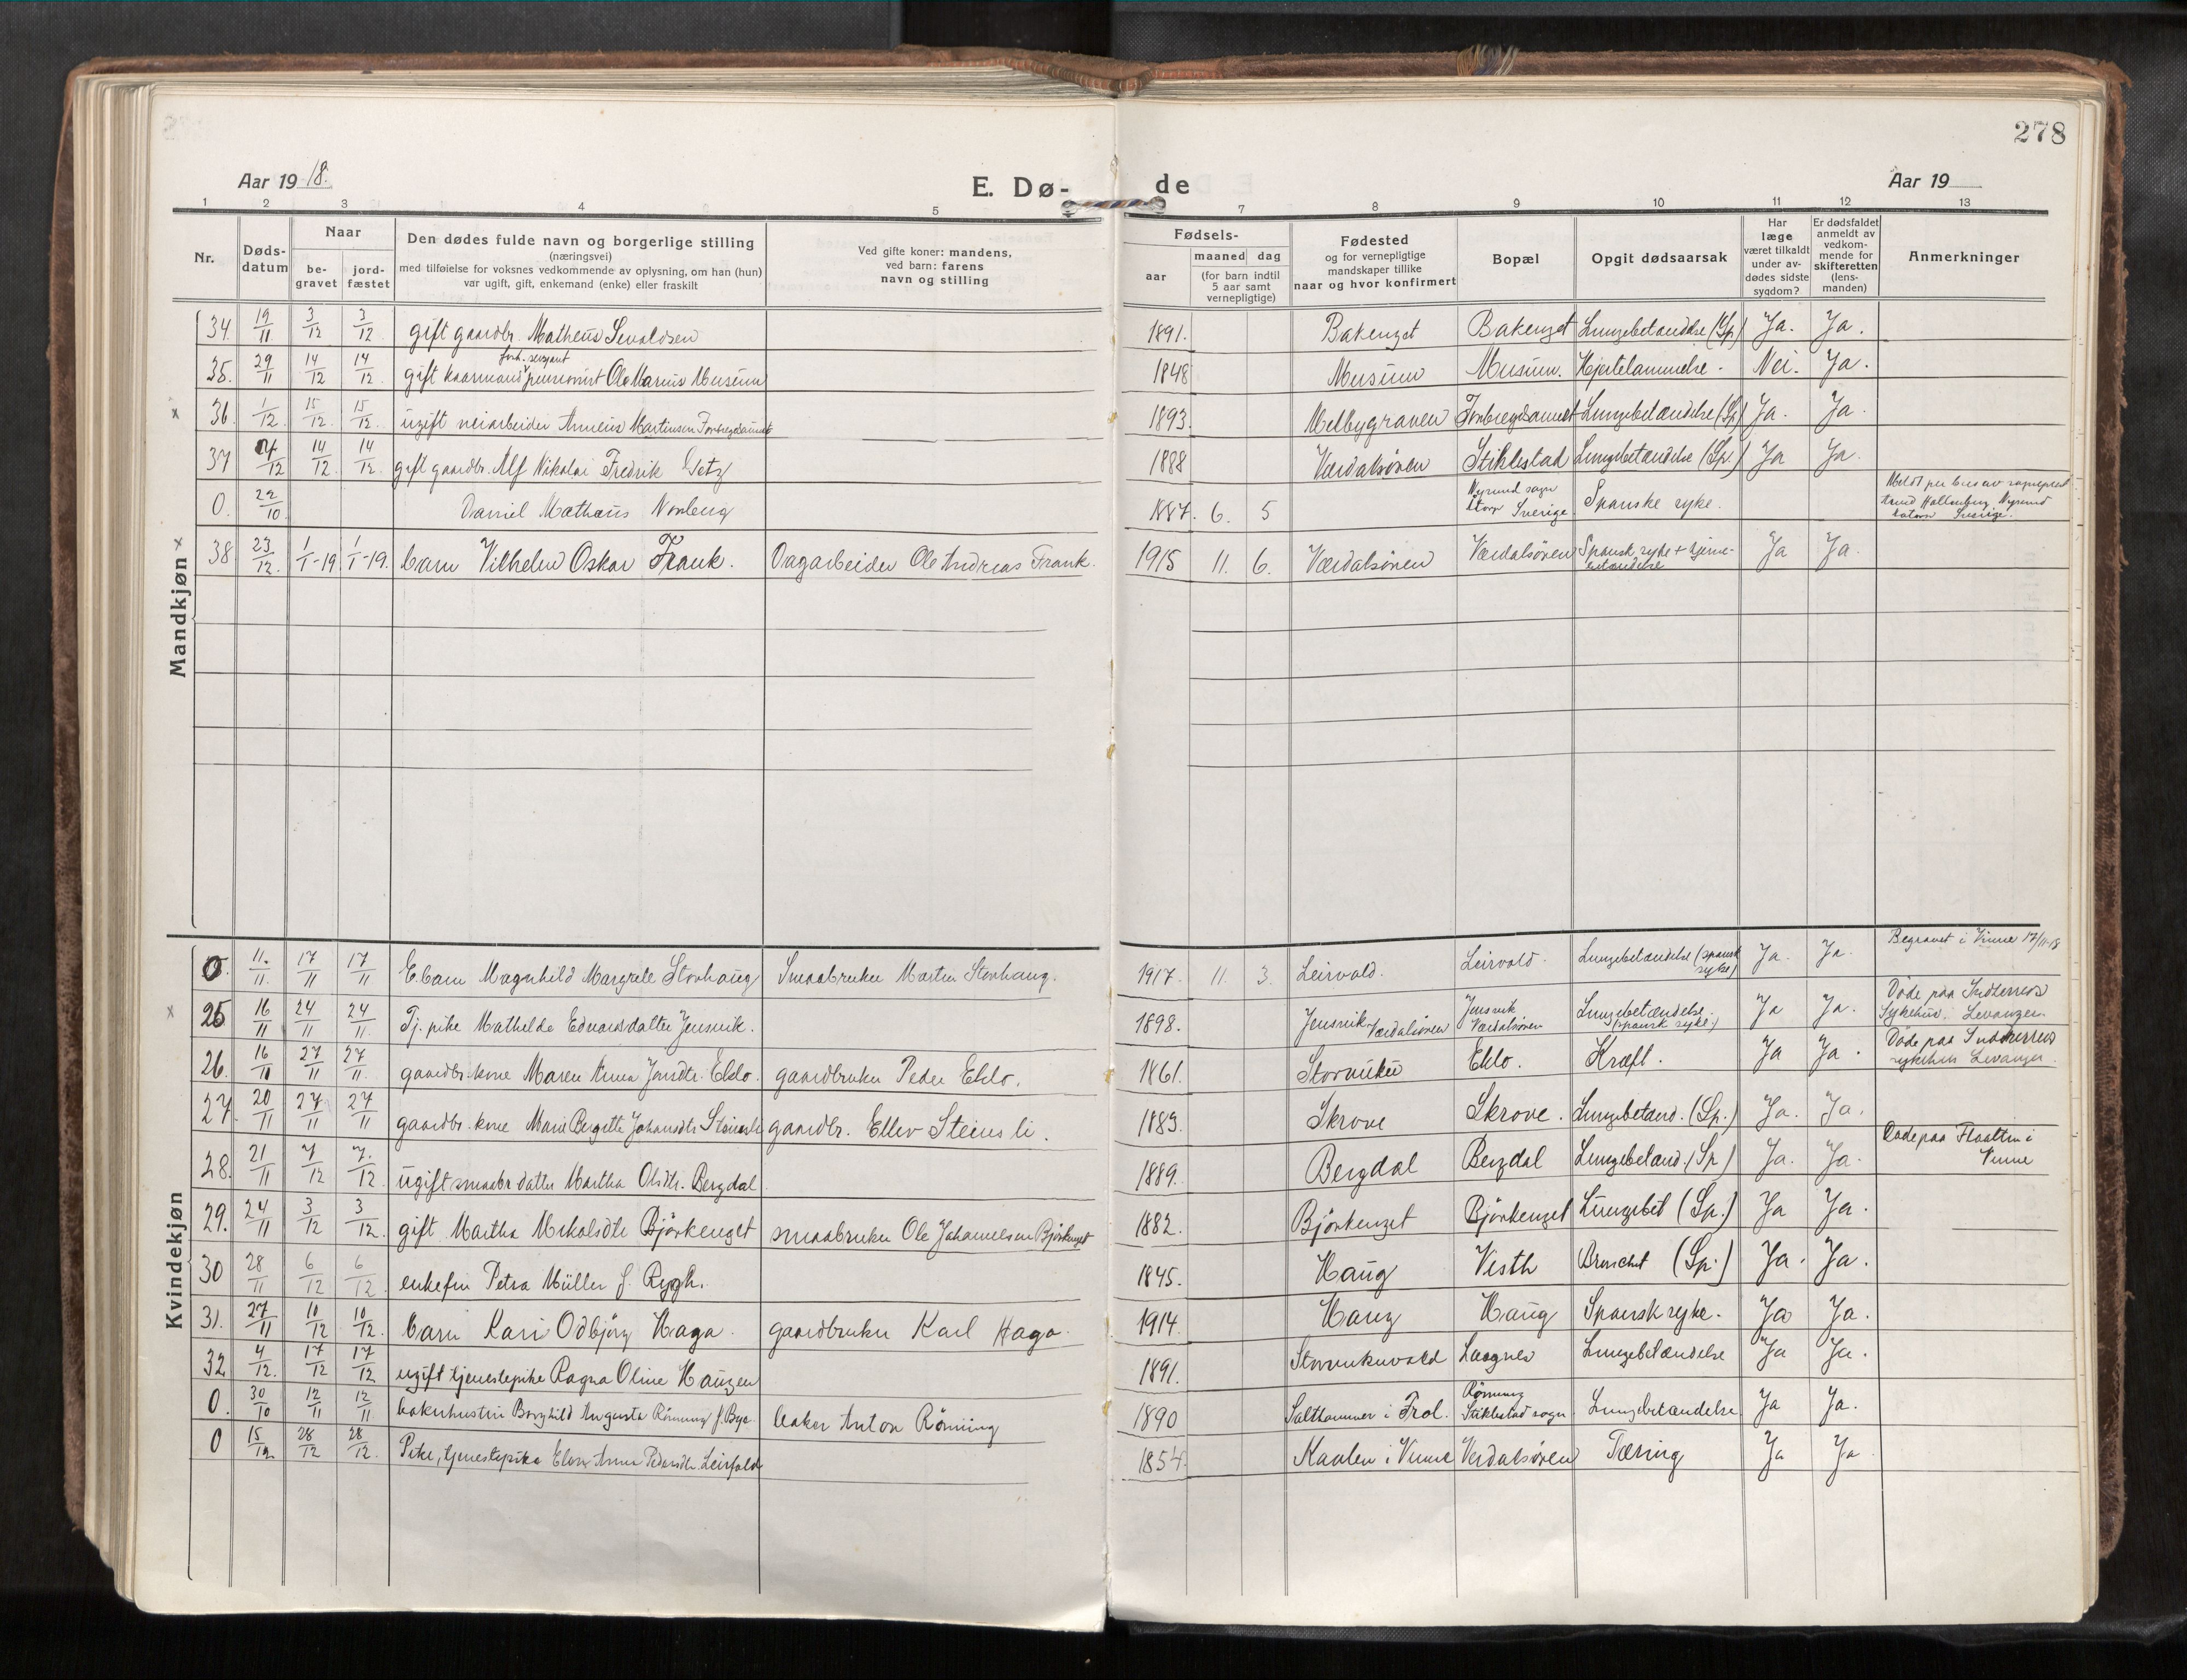 278
Aar 19 18.
E. Dø-
de
Aar 19
1 2 3 4 5 7 8 9 10 11 12 13
Nr.
Døds-
datum
Naar
be-
gravet
jord-
fæstet
Den dødes fulde navn og borgerlige stilling
(næringsvei)
med tilføielse for voksnes vedkommende av oplysning, om han (hun)
var ugift, gift, enkemand (enke) eller fraskilt
Ved gifte koner: mandens,
ved barn: farens
navn og stilling
Fødsels-
aar
maaned dag
(for barn indtil
5 aar samt
vernepligtige)
Fødested
og for vernepligtige
mandskaper tillike
naar og hvor konfirmert
Bopæl
Opgit dødsaarsak
Har
læge
været tilkaldt
under av-
dødes sidste
sygdom?
Er dødsfaldet
anmeldt av
vedkom-
mende for
skifteretten
(lens-
manden)
Anmerkninger
Mandkjøn
34. 19/11 3/12 3/12 gift gaardbr. Matheus Sevaldsen 1891. Bakenget Bakenget Lungebetændelse (Sp) Ja. Ja.
forh. sergeant
35. 29/11 14/12 14/12 gift kaarmand pensionist Ole Marius Musum 1848 Musum Musum. Hjertelammelse. Nei. Ja.
x 36. 1/12 15/12 15/12 ugift veiarbeider Martinsen 1893. Melbygraven Lungebetændelse (Sp) Ja. Ja.
37 4/12 14/12 14/12 gift gaardbr. Alf Nikolai Fredrik Getz 1888 Værdalsøren Stiklestad Lungebetændelse (Sp.) Ja Ja.
0. 22/10 Daniel Mathæus 1887. 6. 5 sogn Sverige Spanske syke. Meldt per brev av sogneprest Hallenberg Sverige.
x 38. 23/12. 1/1-19 1/1-19. barn Vilhelm Oskar Frank. Dagarbeider Ole Andreas Frank. 1915 11. 6. Værdalsøren Værdalsøren Spansk syke + hjerne-
betændelse Ja Ja.
Kvindekjøn
0. 11/11. 17/11 17/11 E. barn Magnhild Margrete Storhaug Smaabruker Martin Storhaug. 1917. 11. 3. Leirvold. Leirvold. Lungebetændelse (spansk
syke) Ja. Ja. Begravet i Vinne 17/11-18
x 25 16/11 24/11 24/11. Tj. pike Mathilde Edvardsdatter Jensvik. 1898. Jensvik Værdalsøren Jensvik
Værdalsøren Lungebetændelse.
(spansk syke) Ja Ja. Døde paa Indherreds
Sykehus. Levanger.
26. 16/11 27/11 27/11. gaardbr. kone Maren Anna Eklo. gaardbruker Peder Eklo. 1861. Eklo. Kræft. Ja Ja. Døde paa Indherreds
sykehus Levanger.
27. 20/11 27/11 27/11 gaardbr. kone Marie Bergitte Johansdtr Steinsli gaardbr. Ellev Steinsli. 1883. Skrove Skrove. Lungebetænd. (Sp.) Ja. Ja.
28. 21/11 7/12 7/12. ugift smaabr datter Martha Olsdtr. Bergdal 1889. Bergdal Bergdal Lungebetænd. (Sp) Ja. Ja. Døde paa i
Vinne
29. 24/11 3/12 3/12. gift Martha Bjørkenget smaabruker Ole Johannessen Bjørkenget 1882. Bjørkenget Bjørkenget Lungebet (Sp.) Ja Ja.
30 28/11 6/12 6/12. enkefru Petra Müller f. Rygh. 1845. Haug Vesth (Sp.) Ja. Ja.
31. 27/11 10/12 10/12. barn Kari Odbjørg Haga. gaardbruker Karl Haga. 1914. Haug Haug Spansk syke. Ja Ja.
32 4/12. 17/12 17/12 ugift tjenestepike Ragna Oline Haugen 1891. Lungebetændelse Ja Ja.
0. 30/10 12/11 12/11 bakerhustru Borghild Augusta Rönning f. Bye. baker Anton Rönning 1890 Salthammer i Frol. Rönning
Stiklestad sogn Lungebetændelse Ja Ja.
0 15/12 28/12 28/12. Pike, tjenestepike Anna Pedersdtr. Leirfald 1854. Kaalen i Vinne Verdalsøren Tæring Ja Ja